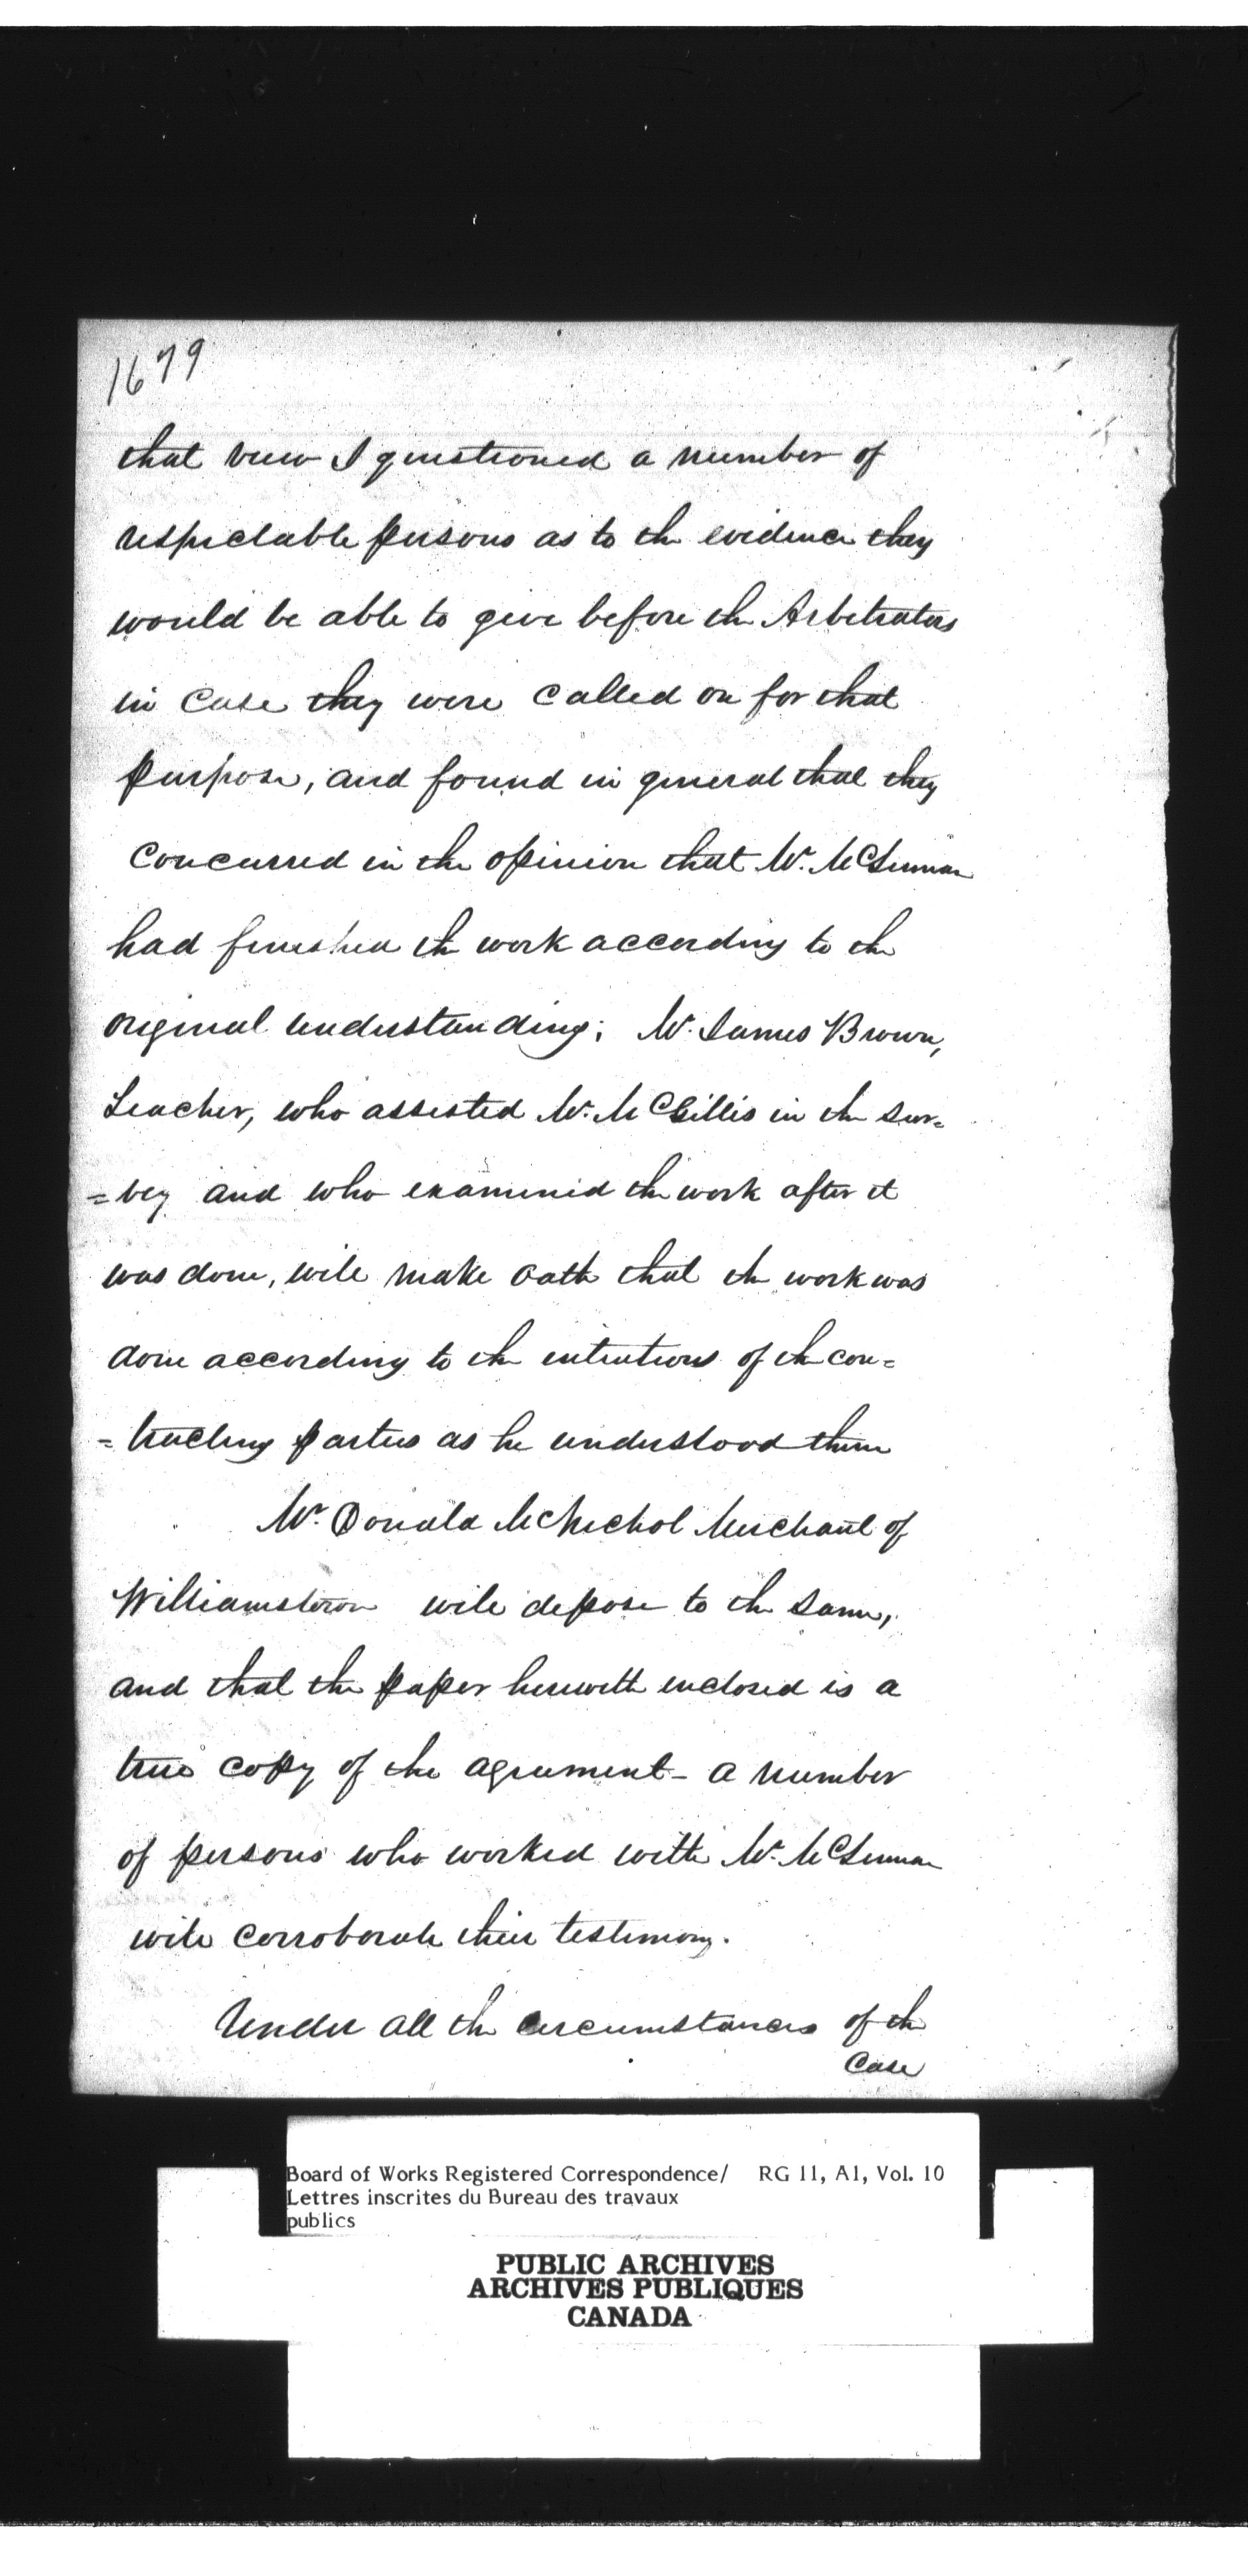 1679
that view I questioned a number of
respectable persons as to the evidence they
would be able to give before the Arbitrators
in case they were called on for that
purpose, and found in general that they
concurred in the opinion that Mr. McLennan
had finished the work according to the
original understanding; Mr. James Brown,
Teacher, who assisted Mr. McGillis in the sur=
=vey and who examined the work after it
was done, will make oath that the work was
done according to the intentions of the con=
=tracting parties as he understood them
Mr. Donald McNichol Merchant of
Williamstown will depose to the same,
and that the paper herewith enclosed is a
true copy of the agreement - a number
of persons who worked with Mr. McLennan
will corroborate their testimony.
Under all the circumstances of the
Case
Board of Works Registered Correspondence/ RG 11, A1, Vol. 10
Lettres inscrites du Bureau des travaux
publics
PUBLIC ARCHIVES
ARCHIVES PUBLIQUES
CANADA